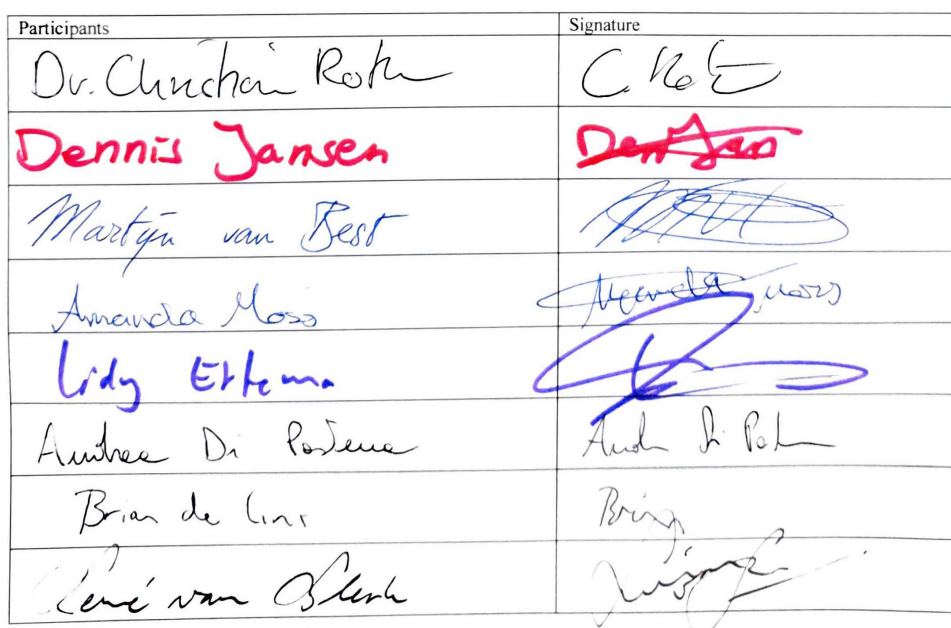 Participants Signature
Dr. Christian Roth C. Roth
Dennis Jansen Den Jan
Martijn van Best
Amanda Moss Amanda Moss
Lidy Ettema
Andrea Di Andrea Di
Brian de Brian
René van